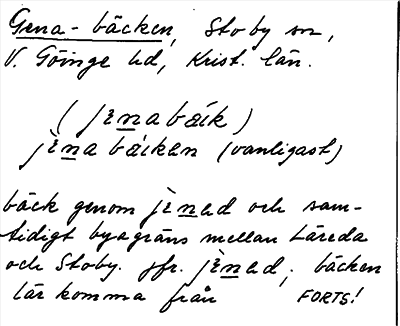 Gena-bäcken, Stoby sn,
V. Göinge hd, Krist. län.
(jènabæ̀k)
jènabàckan (vanligast)
bäck genom jènad och sam-
tidigt byagräns mellan Läreda
och Stoby. jfr. jènad; bäcken
lär komma från FORTS!